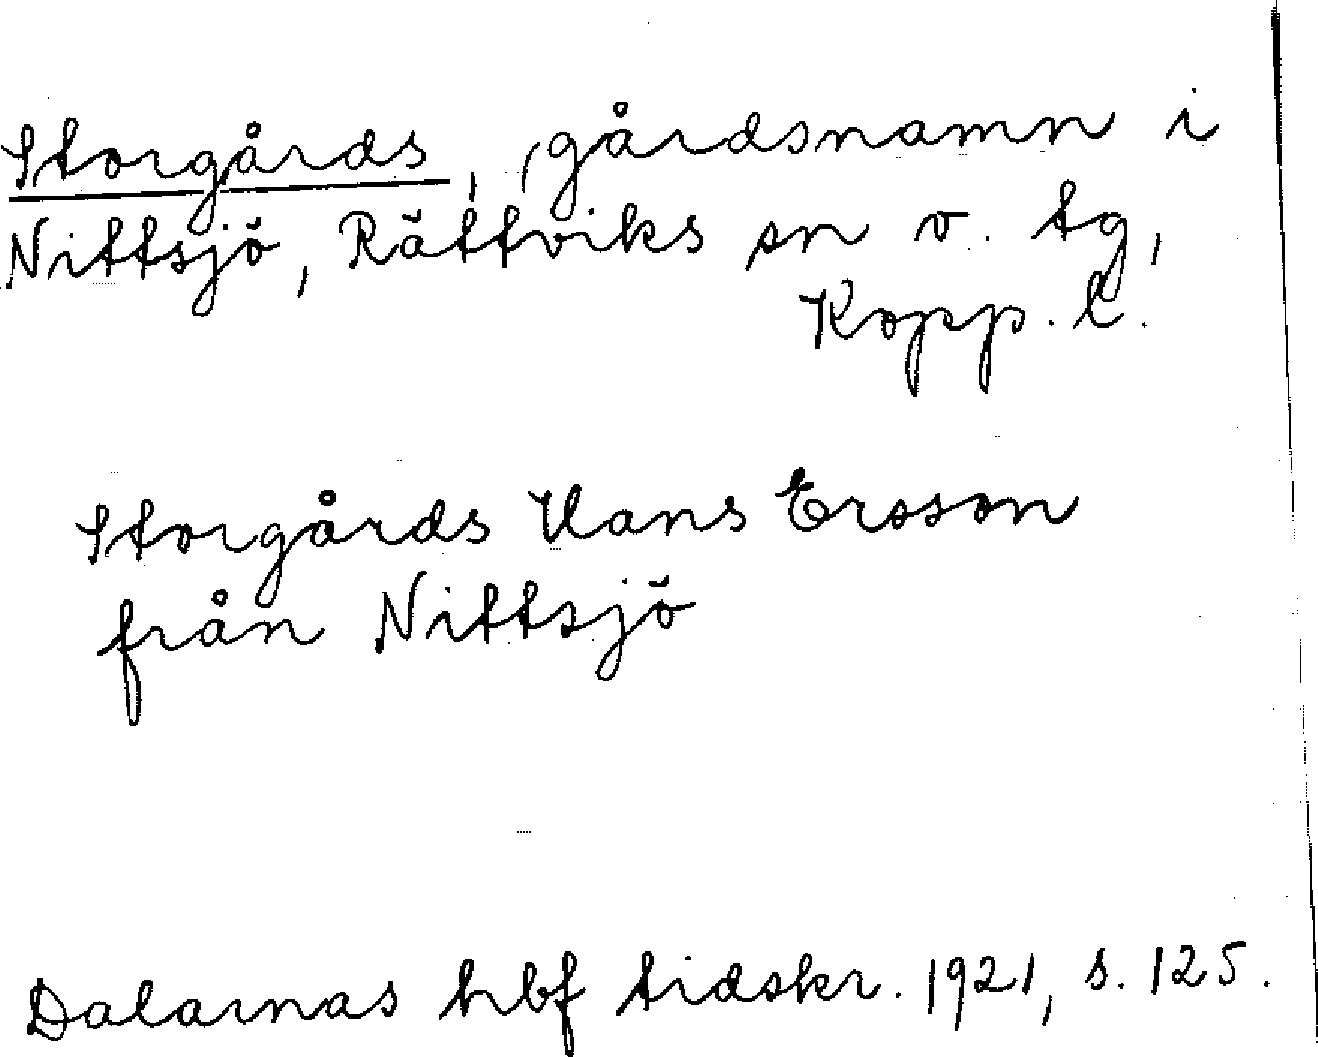 Storgårds, gårdsnamn i
Nittsjö, Rättviks sn o. tg,
Kopp. l.
Storgårds Hans Ersson
från Nittsjö
Dalarnas hbf tidskr. 1921, s. 125.